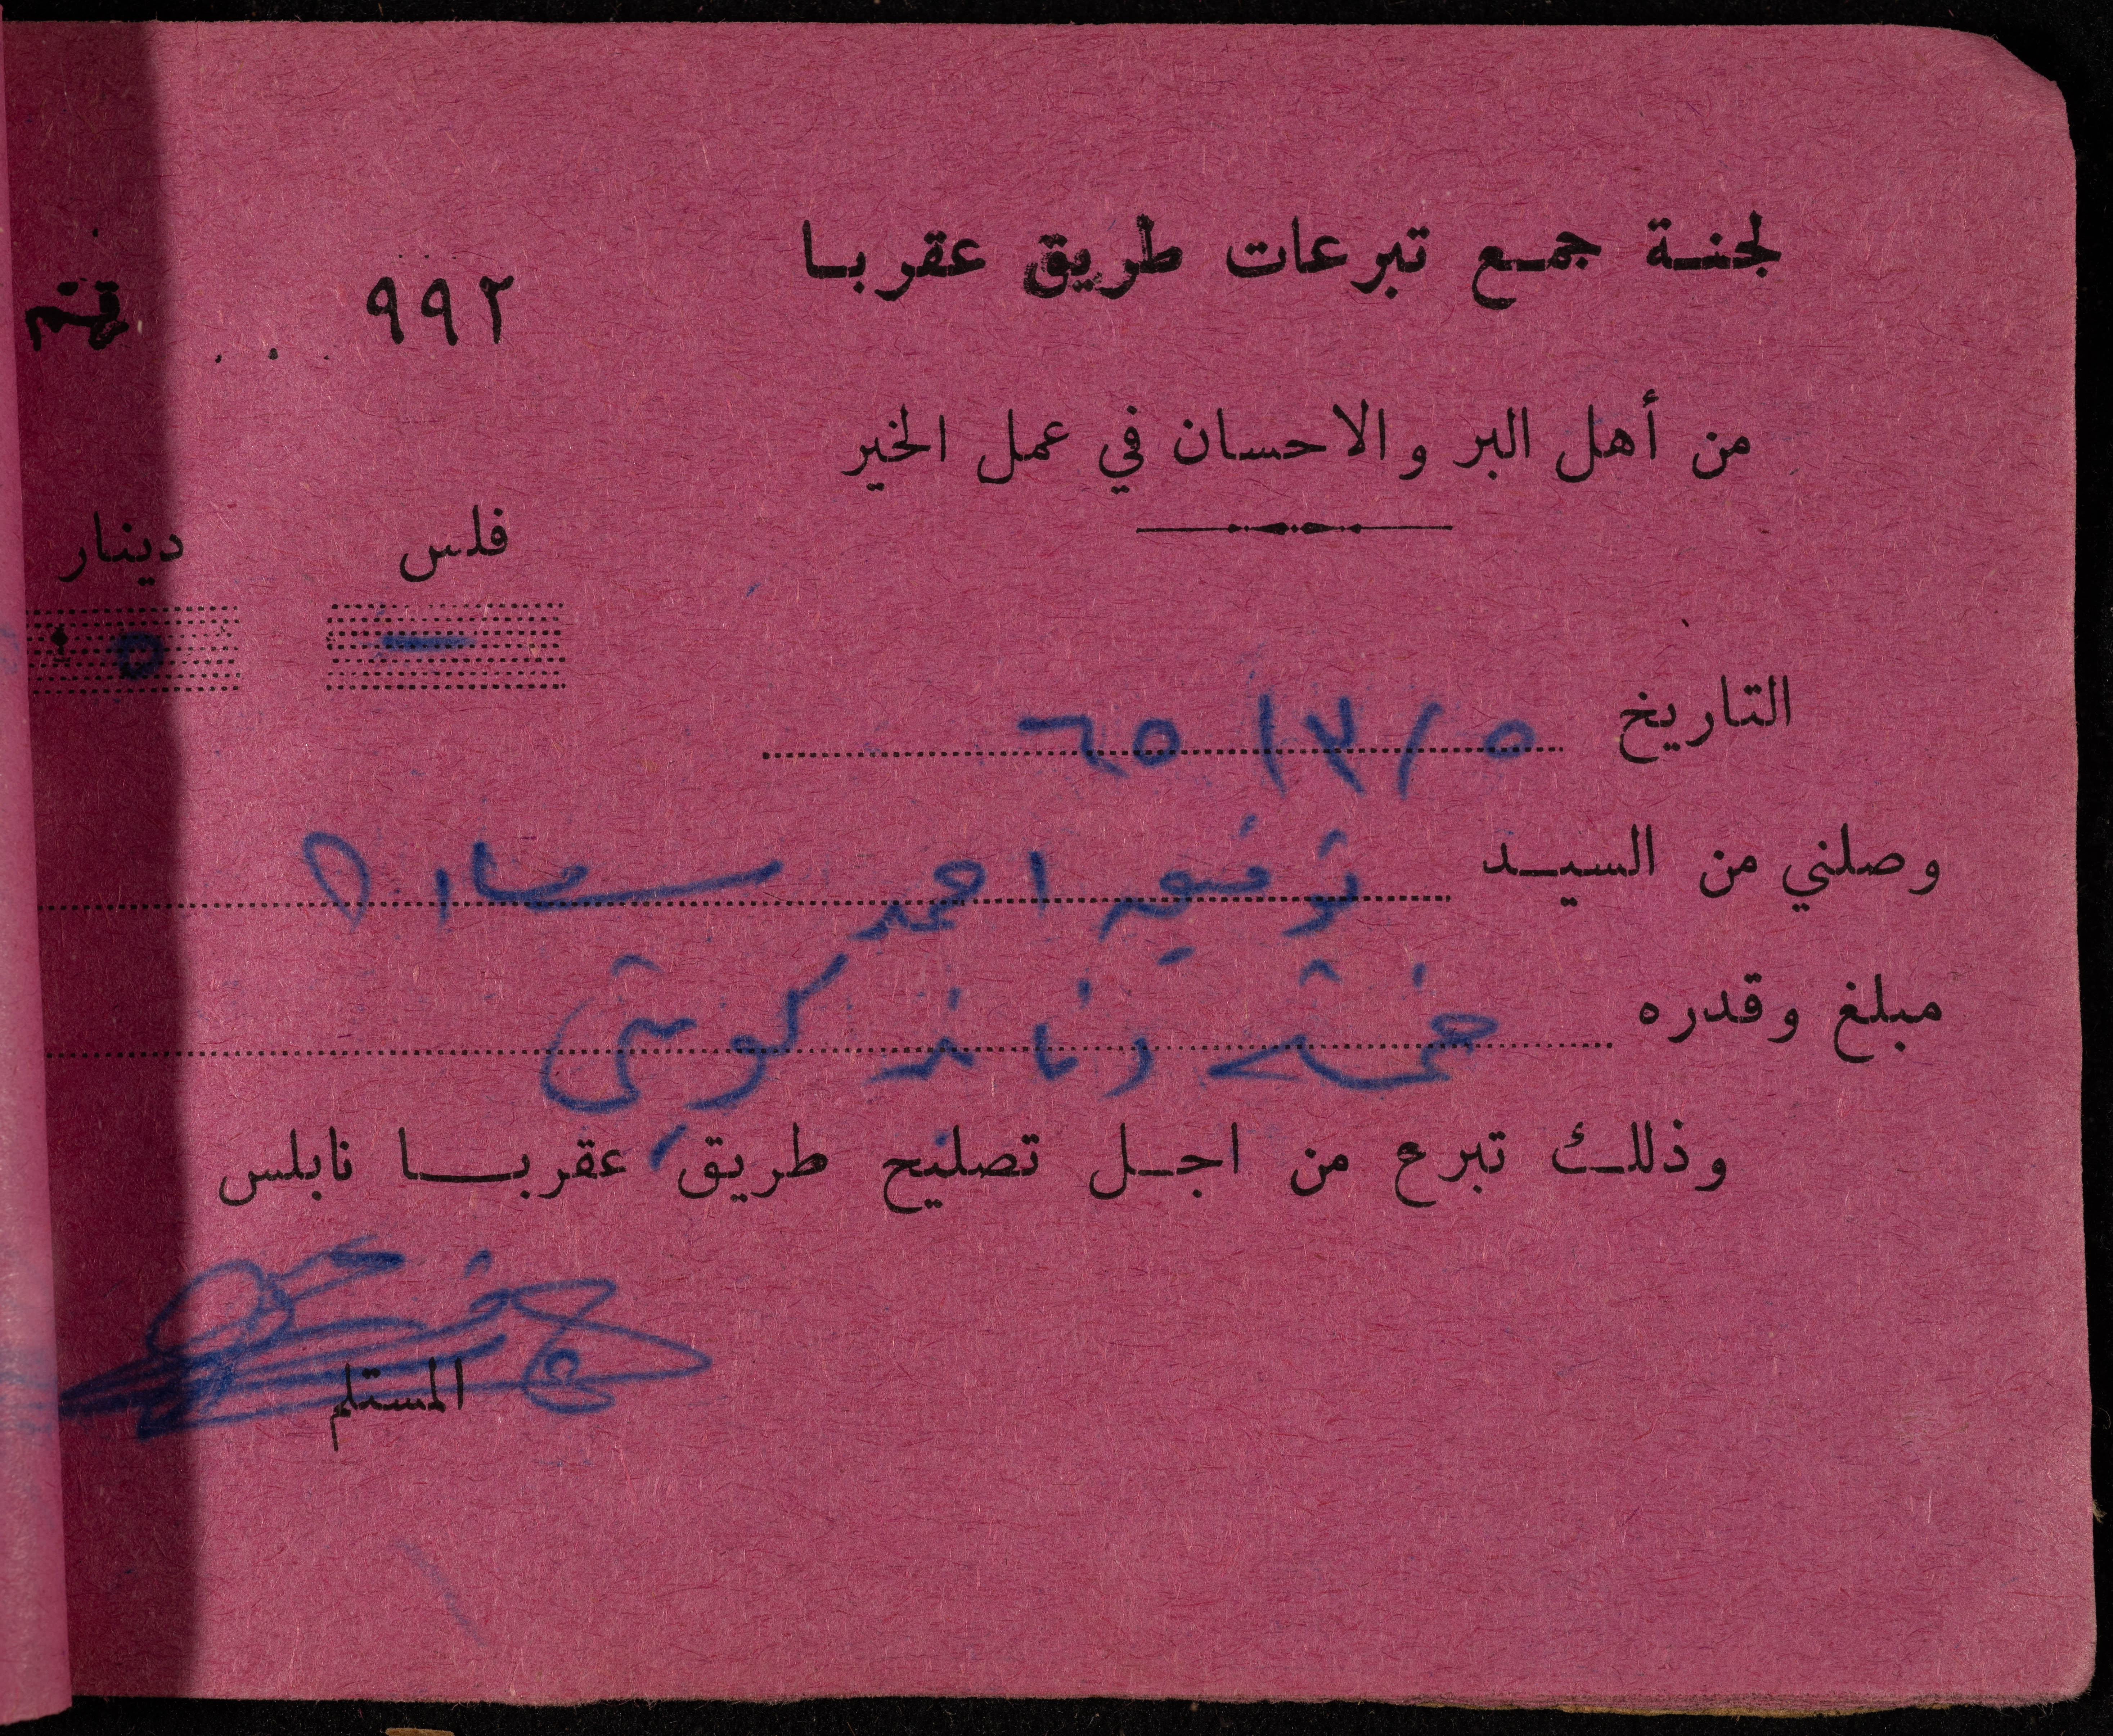 لجنة جمع تبرعات طريق عقربا
٩٩٢
من أهل البر والاحسان في عمل الخير
فلس دينار
- ٥
التاريخ ٥ / ٣ / ٦٥
وصلني من السيد توفيق احمد سعاده
مبلغ وقدره خمسة دنانير كويتي
وذلك تبرع من اجل تصليح طريق عقربا نابلس
المستلم